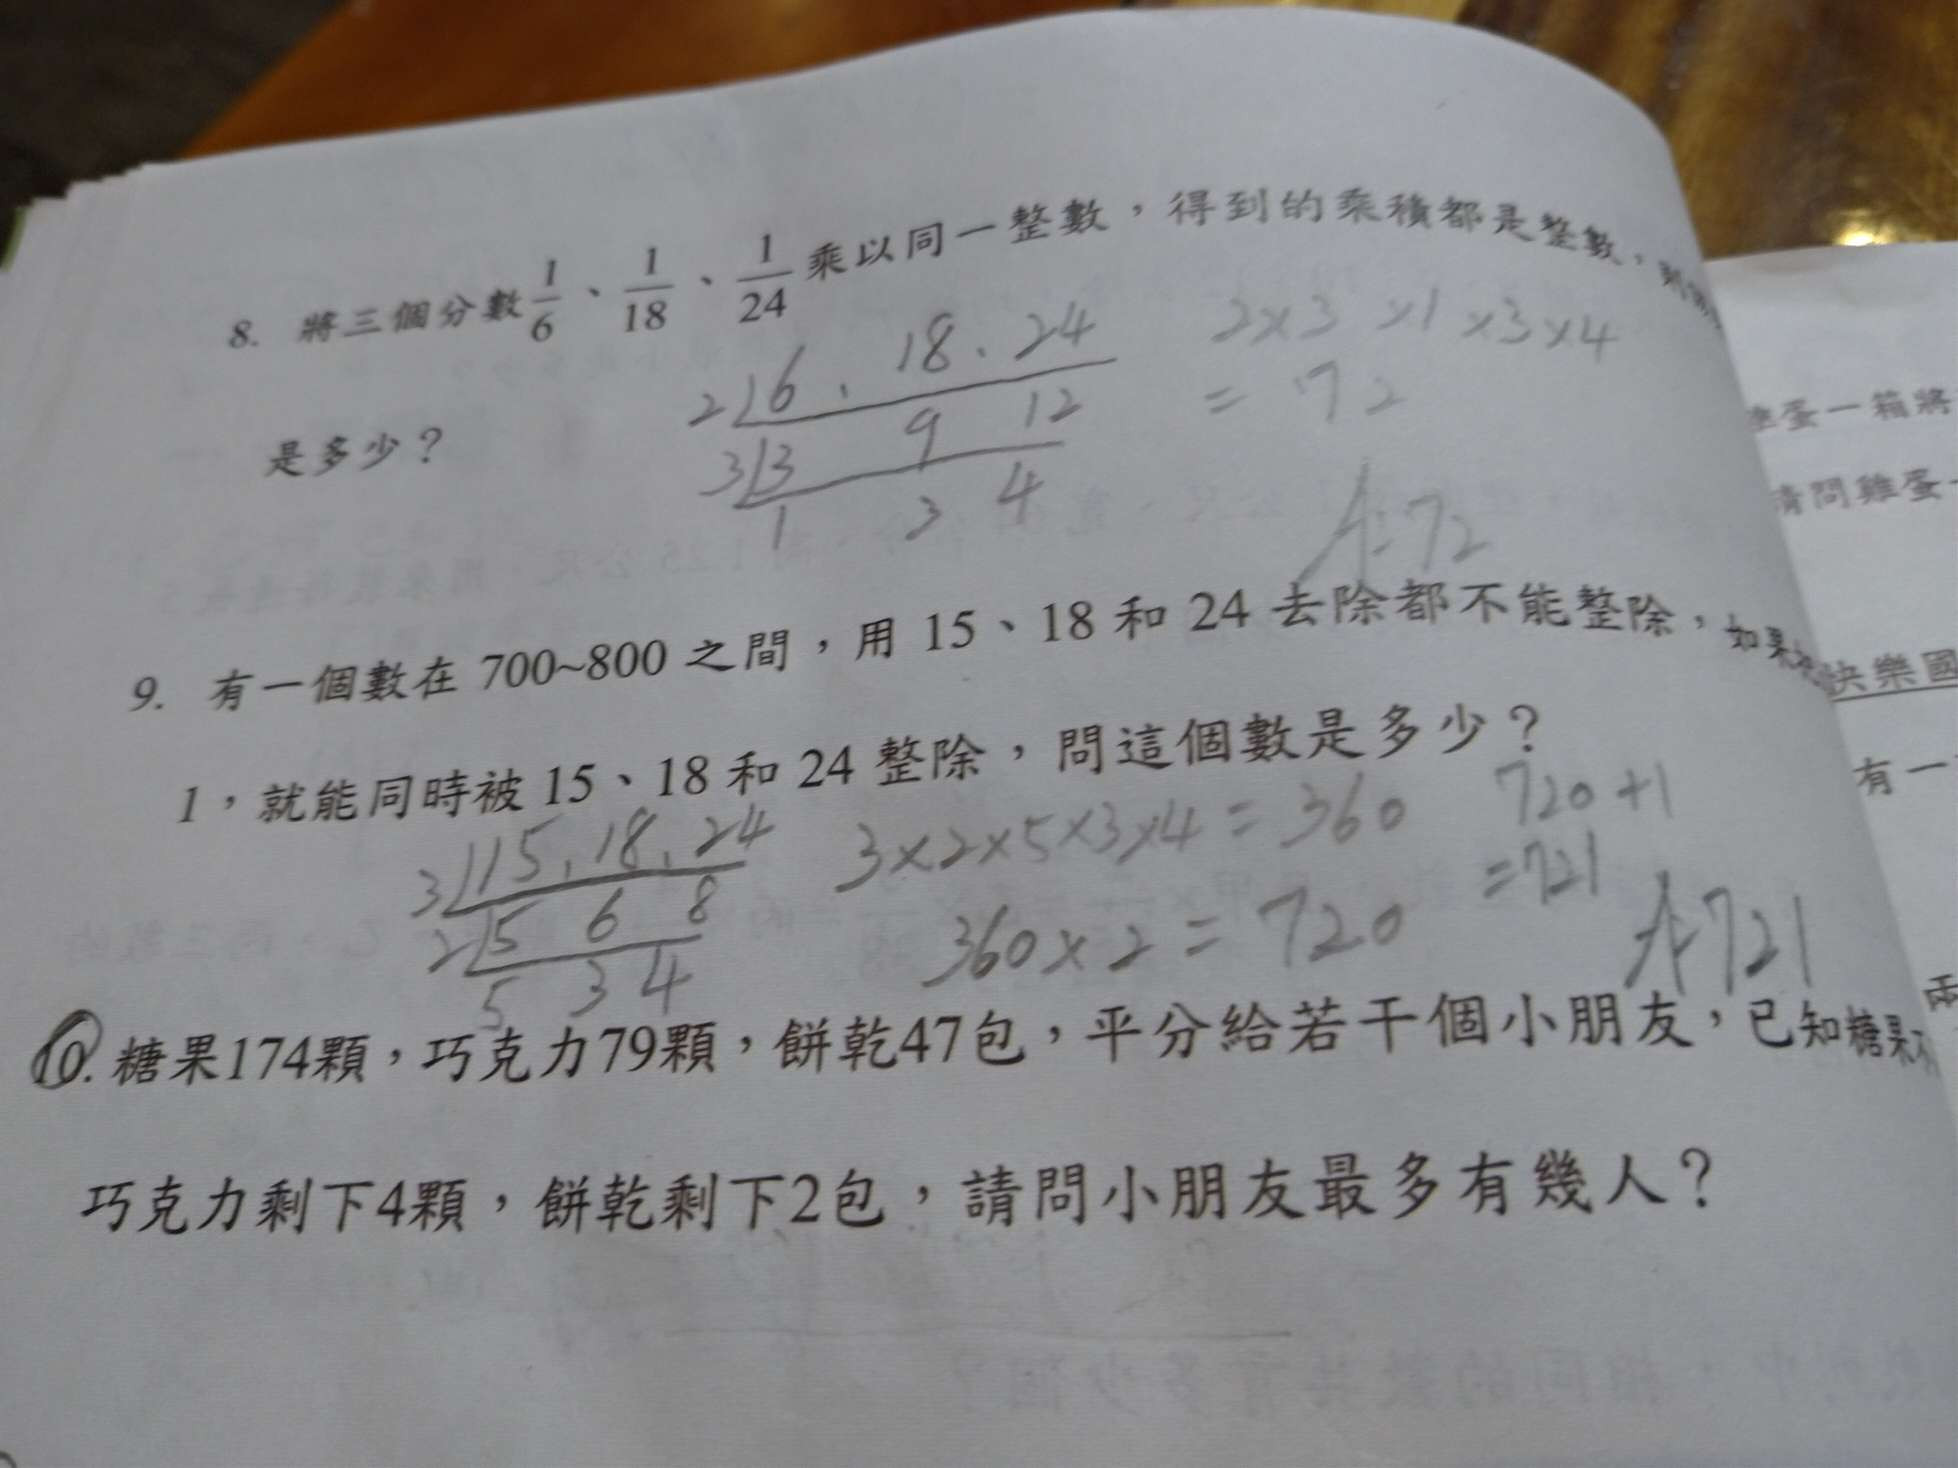 8. 將三個分數 1/6、1/18、1/24 乘以同一整數，得到的乘積都是整數，則
2 6、18、24 2×3×1×3×4
3 3 9 12 = 72
是多少？
1 3 4
A:72
9. 有一個數在 700~800 之間，用 15、18 和 24 去除都不能整除，如果
1，就能同時被 15、18 和 24 整除，問這個數是多少？
3 15、18、24 3×2×5×3×4=360 720+1
2 5 6 8 =721
5 3 4 360×2=720 A:721
10. 糖果174顆，巧克力79顆，餅乾47包，平分給若干個小朋友，已知糖果不
巧克力剩下4顆，餅乾剩下2包，請問小朋友最多有幾人？
蛋一箱將
請問雞蛋
快樂國
有一
兩